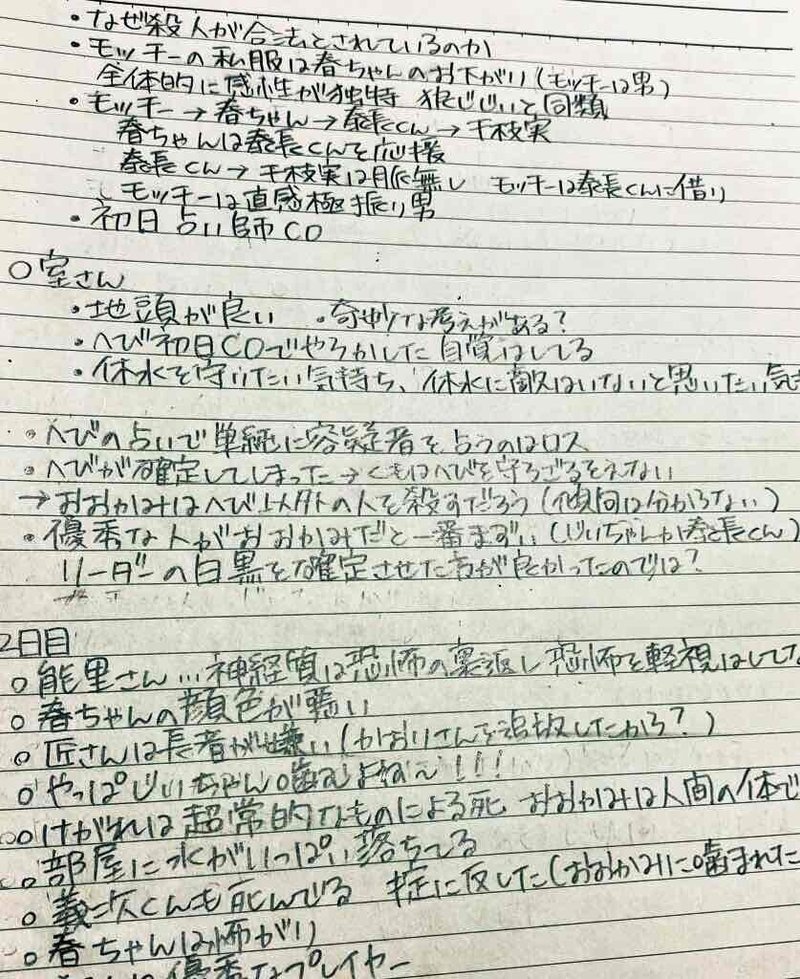 ・なぜ殺人が合法とされているのか
・モッチーの私服は春ちゃんのお下がり(モッチーは男)
全体的に感性が独特 狼じじいと同類
・モッチー→春ちゃん→泰長くん→千枝実
春ちゃんは泰長くんを応援
泰長くん→千枝実は脈無し モッチーは泰長くんに借り
モッチーは直感極振り男
・初日占い師CO
○室さん
・地頭が良い ・奇妙な考えがある?
・へび初日COでやらかした自覚はしてる
・休水を守りたい気持ち、休水に敵はいないと思いたい気
・へびの占いで単純に容疑者を占うのはロス
・へびが確定してしまった→くもはへびを守らざるをえない
→おおかみはへび以外の人を殺すだろう(傾向は分からない)
・優秀な人がおおかみだと一番まずい(じいちゃんか泰長くん)
リーダーの白黒を確定させた方が良かったのでは?
2日目
○能里さん…神経質は恐怖の裏返し 恐怖を軽視はしてな
○春ちゃんの顔色が悪い
○匠さんは長者が嫌い(かおりさんを追放したから?)
○やっぱじいちゃん噛むよねぇ~!!!
○けがれは超常的なものによる死 おおかみは人間の体で
○部屋に水がいっぱい落ちてる
○義次くんも死んでる 掟に反した(おおかみに噛まれた
○春ちゃんは怖がり
優秀なプレイヤー